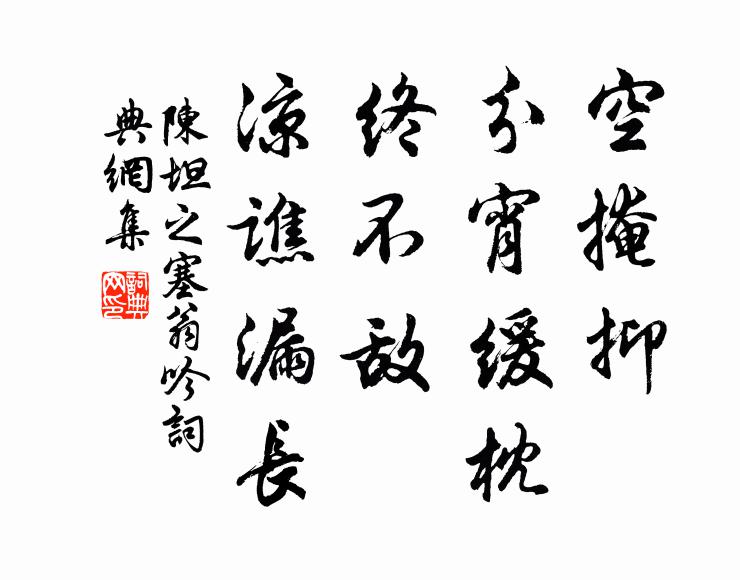 空掩抑
分宵緩枕
終不敌
凉譙漏長
陳坦之塞翁吟詞
典網集
詞典
网印